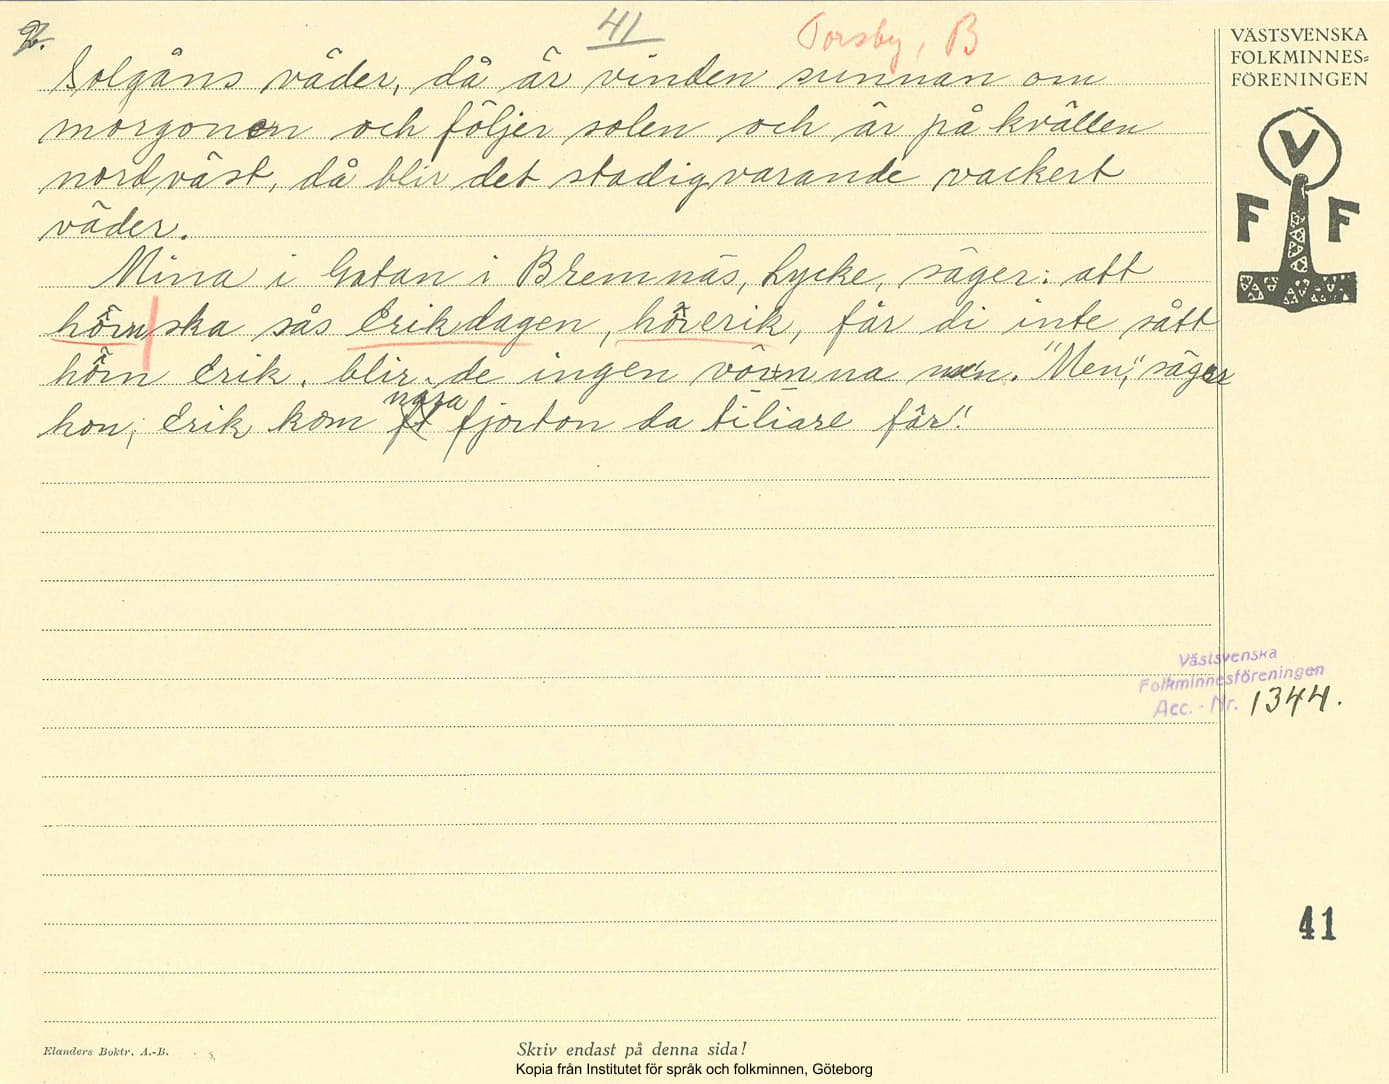 2.
41
Torsby, B
Solgåns väder, då är vinden sunnan om
morgonen och följer solen och är på kvällen
nordväst, då blir det stadigvarande vackert
väder.
Mina i Gatan i Bremnäs, Lycke, säger: att
hörn ska sås Erikdagen, hörerik, får di inte sått
hörn Erik, blir de ingen vörnna men. "Men," säger
hon, Erik kom nora fjorton da tiliare får."
VÄSTSVENSKA
FOLKMINNES=
FÖRENINGEN
V
F F
Västsvenska
Folkminnesföreningen
Acc. - Nr. 1344.
41
Elanders Boktr. A.-B.
Skriv endast på denna sida!
Kopia från Institutet för språk och folkminnen, Göteborg